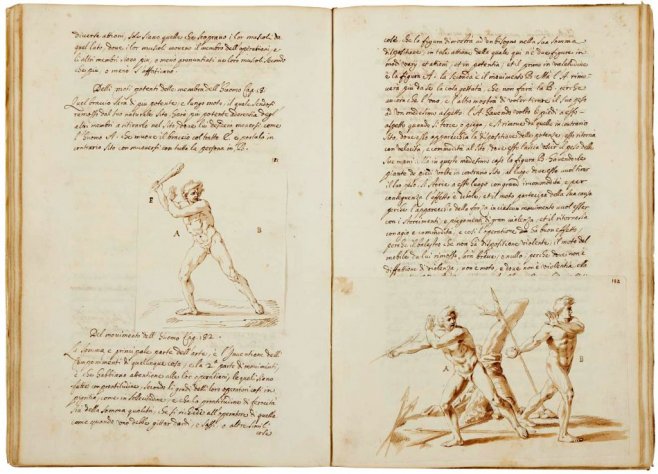 diverse attioni, solo siano quelle che scoprano i lor muscoli da
quel lato, dove i lor muscoli movono il membro dell'operationi, e
li altri membri siano più, o meno pronuntiati ne' loro muscoli secondo
che più, o meno s'affaticano.
Delli moti potenti delle membra dell'huomo Cap. 181.
Quel braccio sarà di più potente, e lungo moto, il quale sendosi
remosso dal suo naturale sito, harà più potente aderenza de gli
altri membri a ritirarlo nel sito, dove lui desidera moversi, come
l'huomo A. che move il braccio col tratto E. e portalo in
contrario sito con muoversi con tutta la persona in B.
181
E
A
B
Del movimento dell'huomo Cap. 182.
La somma e principale parte dell'arte, è l'inventione delli
componimenti di qualunque cosa, e la 2.ª parte di movimenti,
è che habbiano attentione alle loro operationi, le quali siano
fatte con prontitudine, secondo li gradi delli loro operatori così in
pigritia, come in sollecitudine, e che la prontitudine di ferocità
sia della somma qualità, che si richiede all'operatore di quella
come quando uno debbe gittar dardi, o sassi, o altre simili
cose
cose, che la figura dimostra
dispositione, in tale attione, delle quali qui n'è due figure in
modi varij et attioni, et in potentia, et il primo in valetudine
è la figura A. la seconda è il movimento B. Ma l'A. rimo=
verà più da se la cosa gettata, che non farà la B. perche
ancora che l'uno, e l'altro mostra di voler tirare il suo peso
ad un medesimo aspetto; l'A. havendo volto li piedi a esso
aspetto quando si torce, o piega, e si rimove da quello in contrario
sito, dove esso apparecchia la dispositione della potentia, esso ritorna
con velocità, e commodità al sito dove esso lascia uscir il peso delle
sue mani. Ma in questo medesimo caso la figura B. havendo le
piante de' piedi volte in contrario sito, al luogo dove esso vuol tirare
il suo peso, si storce a esso luogo con grande incommodità, e per
conseguenza l'effetto è debole, et il moto partecipa della sua causa
perche l'apparecchio della forza in ciascun movimento vuol esser
con istorcimenti, e piegamenti di gran violenza, et il ritorno sia
con agio e commodità, e così l'operatione ha buon effetto;
perche il balestro che non ha dispositione violente, il moto del
mobile da lui rimosso, sarà breve, o nullo; perche dove non è
disfattione di violenza, non è moto, e dove non è violentia ella
182
A
B